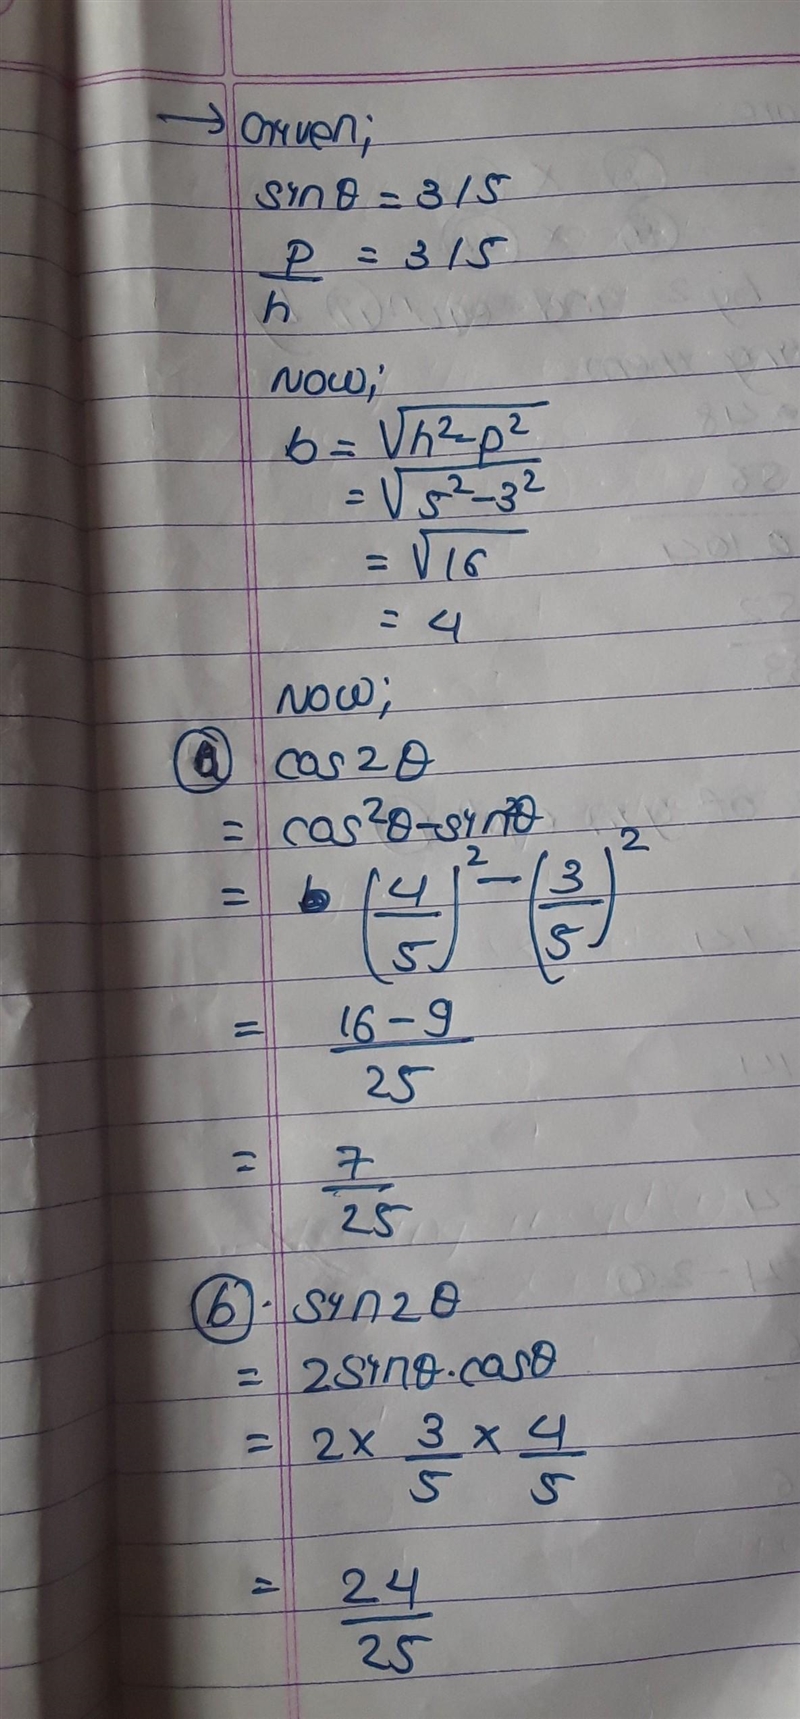 → Given;
sinθ = 3/5
p/h = 3/5
Now;
b = √h²-p²
= √5²-3²
= √16
= 4
Now;
(a) cos2θ
= cos²θ-sin²θ
= (4/5)² - (3/5)²
= 16-9/25
= 7/25
(b). sin2θ
= 2sinθ.cosθ
= 2× 3/5 × 4/5
= 24/25